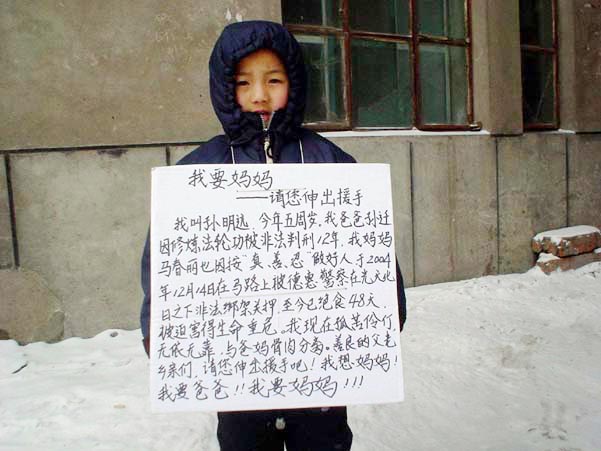 我要妈妈
——请您伸出援手
我叫孙明远，今年五周岁。我爸爸孙迁
因修炼法轮功被非法判刑12年。我妈妈
马春丽也因按“真、善、忍”做好人于2004
年12月14日在马路上被德惠警察在光天化
日之下非法绑架关押，至今已绝食48天，
被迫害得生命垂危。我现在孤苦伶仃，
无依无靠，与爸妈骨肉分离。善良的父老
乡亲们，请您伸出援手吧！我想妈妈！
我要爸爸！！我要妈妈！！！